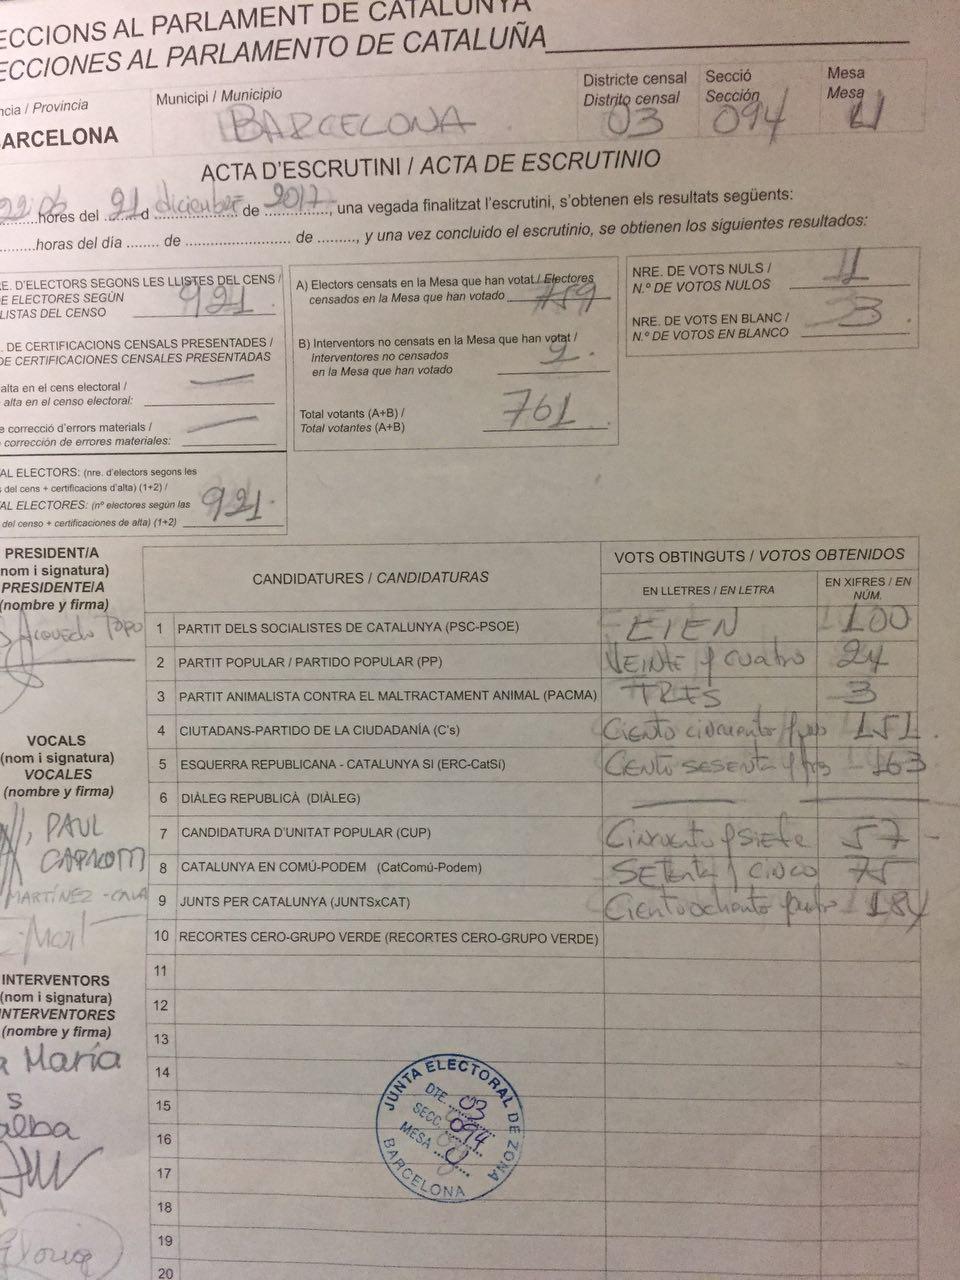 ECCIONS AL PARLAMENT DE CATALUNYA
ECCIONES AL PARLAMENTO DE CATALUÑA
ncia / Provincia
ARCELONA
Municipi / Municipio
BARCELONA
Districte censal
Distrito censal
03
Secció
Sección
094
Mesa
Mesa
U
ACTA D'ESCRUTINI / ACTA DE ESCRUTINIO
hores del 21 d diciembre de 2017, una vegada finalitzat l'escrutini, s'obtenen els resultats següents:
horas del día ....... de .......................... de .........., y una vez concluido el escrutinio, se obtienen los siguientes resultados:
RE. D'ELECTORS SEGONS LES LLISTES DEL CENS /
E ELECTORES SEGÚN
LISTAS DEL CENSO 921
. DE CERTIFICACIONS CENSALS PRESENTADES /
DE CERTIFICACIONES CENSALES PRESENTADAS
alta en el cens electoral /
alta en el censo electoral:
e correcció d'errors materials /
corrección de errores materiales:
AL ELECTORS: (nre. d'electors segons les
del cens + certificacions d'alta) (1+2) /
AL ELECTORES: (nº electores según las
del censo + certificaciones de alta) (1+2) 921
A) Electors censats en la Mesa que han votat / Electores
censados en la Mesa que han votado 759
B) Interventors no censats en la Mesa que han votat /
Interventores no censados
en la Mesa que han votado 2
Total votants (A+B) /
Total votantes (A+B) 761
NRE. DE VOTS NULS /
N.º DE VOTOS NULOS 1
NRE. DE VOTS EN BLANC /
N.º DE VOTOS EN BLANCO 3
PRESIDENT/A
nom i signatura)
PRESIDENTE/A
(nombre y firma)
VOCALS
(nom i signatura)
VOCALES
(nombre y firma)
PAUL
MARTÍNEZ
INTERVENTORS
(nom i signatura)
INTERVENTORES
(nombre y firma)
María
s
alba
CANDIDATURES / CANDIDATURAS
VOTS OBTINGUTS / VOTOS OBTENIDOS
EN LLETRES / EN LETRA
EN XIFRES / EN NÚM.
1 PARTIT DELS SOCIALISTES DE CATALUNYA (PSC-PSOE) CIEN 100
2 PARTIT POPULAR / PARTIDO POPULAR (PP) VEINTE y cuatro 24
3 PARTIT ANIMALISTA CONTRA EL MALTRACTAMENT ANIMAL (PACMA) TRES 3
4 CIUTADANS-PARTIDO DE LA CIUDADANÍA (C's) Ciento cincuenta y uno 151
5 ESQUERRA REPUBLICANA - CATALUNYA SI (ERC-CatSí) CIENTO SESENTA y tres 163
6 DIÀLEG REPUBLICÀ (DIÀLEG)
7 CANDIDATURA D'UNITAT POPULAR (CUP) Cincuenta y siete 57
8 CATALUNYA EN COMÚ-PODEM (CatComú-Podem) SETENTA y cinco 75
9 JUNTS PER CATALUNYA (JUNTSxCAT) Ciento ochenta y cuatro 184
10 RECORTES CERO-GRUPO VERDE (RECORTES CERO-GRUPO VERDE)
11
12
13
14
15
16
17
18
19
20
JUNTA ELECTORAL DE ZONA
DTE. 03
SECC. 094
MESA U
BARCELONA